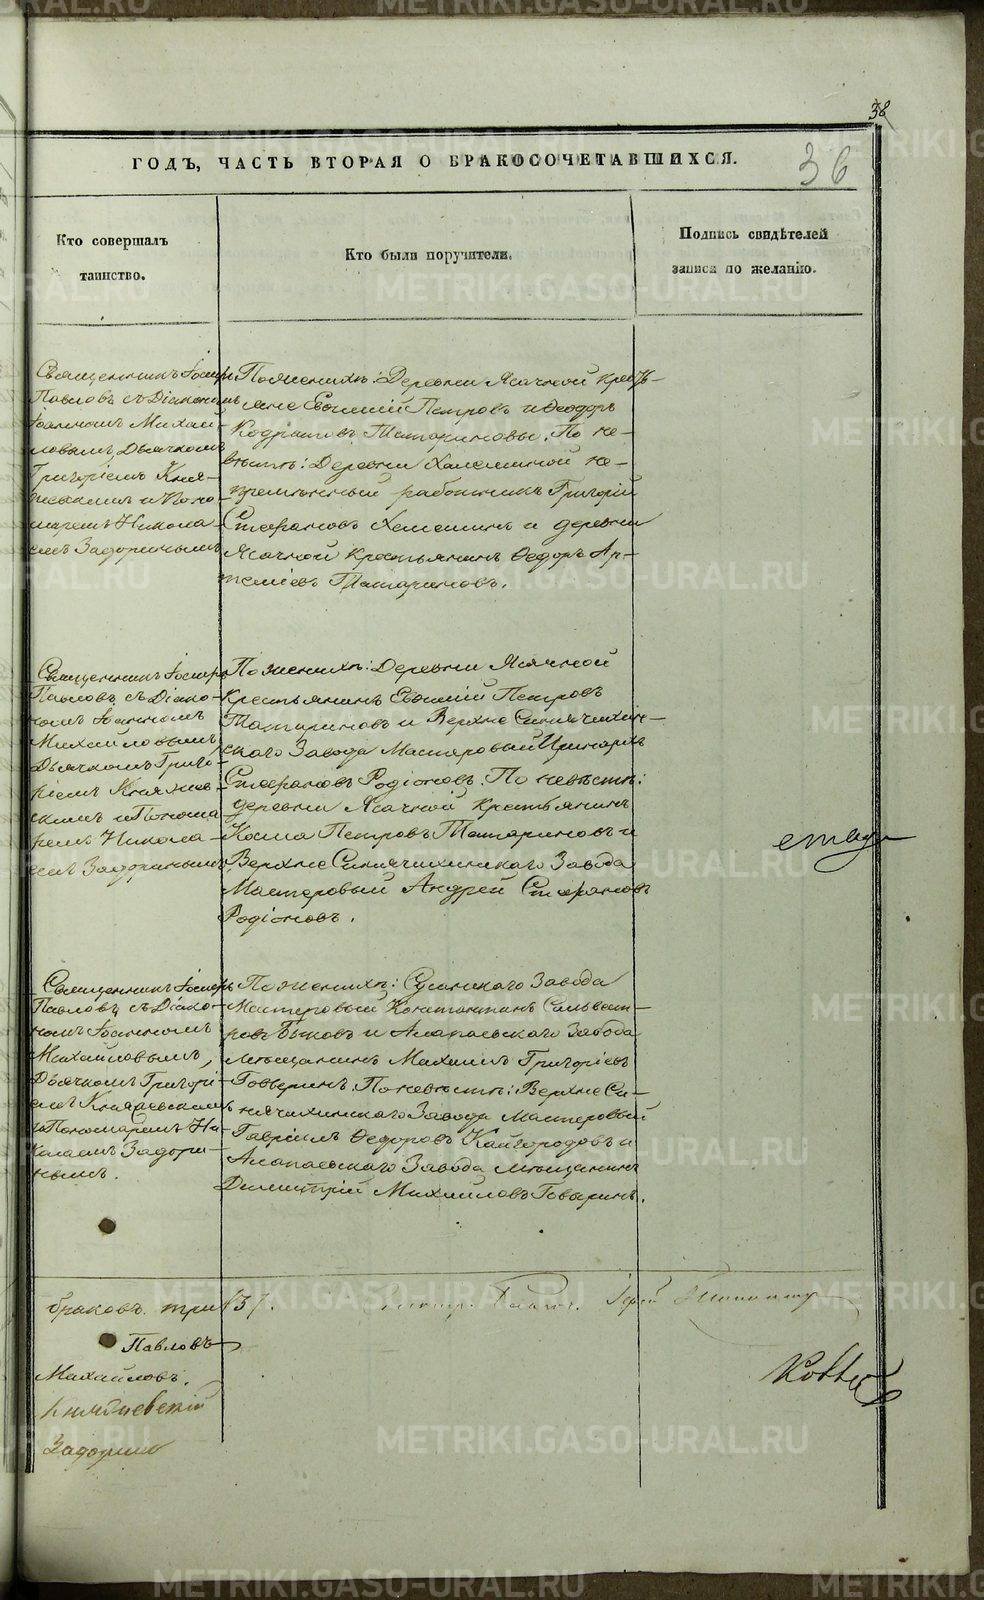 38
36
ГОДЪ, ЧАСТЬ ВТОРАЯ О БРАКОСОЧЕТАВШИХСЯ.
Кто совершалъ
таинство.
Кто были поручители.
Подпись свидѣтелей
записи по желанію.
Священникъ Іосифъ
Павловъ съ Діакономъ
Іоанномъ Михай-
ловымъ, Дьячкомъ
Григоріемъ Кня-
жевскимъ и Поно-
маремъ Никола-
емъ Задоринымъ
По женихѣ: Деревни Ясачной крестья-
яне Евѳимій Петровъ и Ѳеодоръ
Кодратовъ Татариновы. По не-
вѣстѣ: Деревни Халеминой не-
премѣнный работникъ Григорій
Стефановъ Халеминъ и деревни
Ясачной крестьянинъ Ѳедоръ Ар-
темьевъ Татариновъ.
Священникъ Іосифъ
Павловъ съ Діако-
номъ Іоанномъ
Михайловымъ
Дьячкомъ Григо-
ріемъ Княжев-
скимъ и Понома
ремъ Никола-
емъ Задоринымъ
По женихѣ: Деревни Ясачной
крестьянинъ Евѳимій Петровъ
Татариновъ и Верхне Синячихин-
скаго Завода Мастеровый
Стефановъ Родіоновъ. По невѣстѣ:
деревни Ясачной крестьянинъ
Косма Петровъ Татариновъ и
Верхне Синячихинскаго Завода
Мастеровый Андрей Стефановъ
Родіоновъ.
Священникъ Іосифъ
Павловъ съ Діако-
номъ Іоанномъ
Михайловымъ,
Дьячкомъ Григорі-
емъ Княжевскимъ
и Пономаремъ Ни-
колаемъ Задори-
нымъ.
По женихѣ: Сусанскаго Завода
Мастеровый Константинъ Сильвест-
ровъ Быковъ и Алапаевскаго Завода
мѣщанинъ Михаилъ Григоріевъ
Говыринъ. По невѣстѣ: Верхне Си-
нячихинскаго Завода Мастеровый
Гавріилъ Ѳедоровъ Кайгородовъ и
Алапаевскаго Завода мѣщанинъ
Димитрій Михайловъ Говыринъ.
браковъ три /3/.
Павловъ
Михайловъ.
Княжевскій
Задоринъ
METRIKI.GASO-URAL.RU